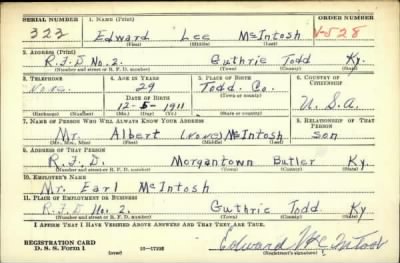 SERIAL NUMBER 1. NAME (Print) ORDER NUMBER
323 Edward Lee McIntosh V-528
(First) (Middle) (Last)
2. ADDRESS (Print)
R.F.D No. 2. Guthrie Todd Ky.
(Number and street or R. F. D. number) (Town) (County) (State)
3. TELEPHONE 4. AGE IN YEARS 5. PLACE OF BIRTH 6. COUNTRY OF CITIZENSHIP
None 29 Todd Co.
DATE OF BIRTH (Town or county)
12-5-1911 U.S.A
(Mo.) (Day) (Yr.) (State or country)
7. NAME OF PERSON WHO WILL ALWAYS KNOW YOUR ADDRESS 8. RELATIONSHIP OF THAT PERSON
Mr. Albert (None) McIntosh son
(Mr., Mrs., Miss) (First) (Middle) (Last)
9. ADDRESS OF THAT PERSON
R.F.D. Morgantown Butler Ky.
(Number and street or R. F. D. number) (Town) (County) (State)
10. EMPLOYER'S NAME
Mr. Earl McIntosh
11. PLACE OF EMPLOYMENT OR BUSINESS
R.F.D No. 2. Guthrie Todd Ky
(Number and street or R. F. D. number) (Town) (County) (State)
I AFFIRM THAT I HAVE VERIFIED ABOVE ANSWERS AND THAT THEY ARE TRUE.
REGISTRATION CARD
D. S. S. Form 1 (over) 16-17105 Edward McIntosh
(Registrant's signature)